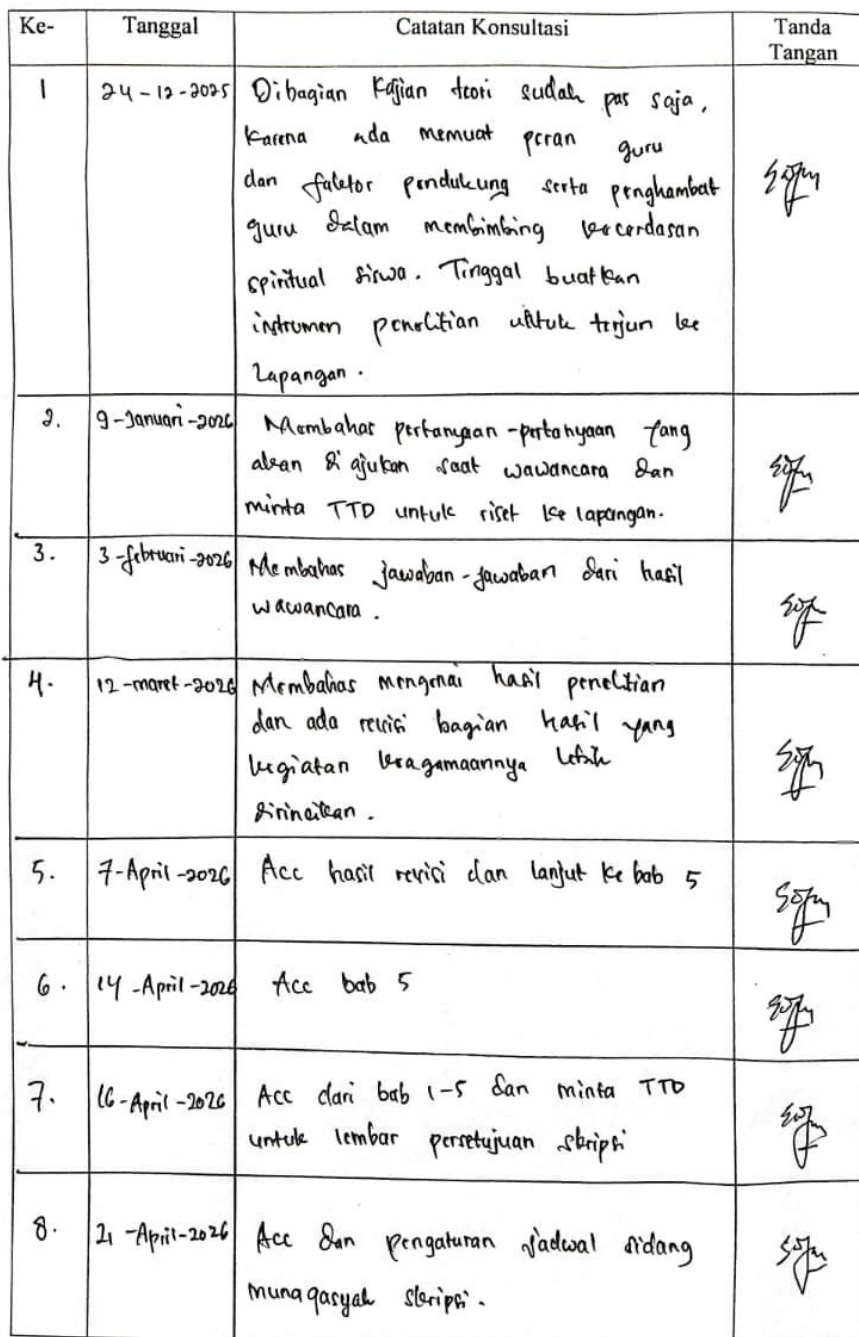 Ke- Tanggal Catatan Konsultasi Tanda
Tangan
1 24-12-2025 Dibagian Kajian teori sudah pas saja,
Karena ada memuat peran guru
dan faktor pendukung serta penghambat
guru dalam membimbing kecerdasan
spiritual siswa. Tinggal buatkan
instrumen penelitian untuk terjun ke
Lapangan.
2. 9-Januari-2026 Membahas pertanyaan-pertanyaan yang
akan di ajukan saat wawancara dan
minta TTD untuk riset ke lapangan.
3. 3-februari-2026 Membahas jawaban-jawaban dari hasil
wawancara.
4. 12-maret-2026 Membahas mengenai hasil penelitian
dan ada revisi bagian hasil yang
kegiatan keagamaannya lebih
dirincikan.
5. 7-April-2026 Acc hasil revisi dan lanjut ke bab 5
6. 14-April-2026 Acc bab 5
7. 16-April-2026 Acc dari bab 1-5 dan minta TTD
untuk lembar persetujuan skripsi
8. 21-April-2026 Acc dan pengaturan jadwal sidang
munaqasyah skripsi.